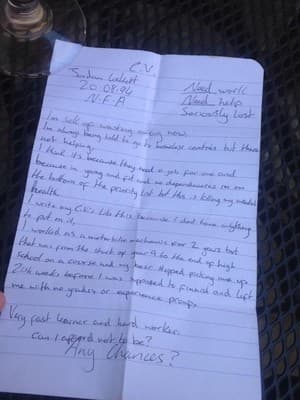 C.V.
Jordan
20.08.94
N.F.A
Need work
Need help
Seriously Lost
I'm sick of wasting away now.
I'm always being told to go to homeless centres but there
not helping.
I think it's because they need a job for one and
because im young and fit and no dependancies im on
the bottom of the priority list but this is killing my mental
health.
I write my C.V.s like this because I dont have anything
to put on it,
I worked as a motorbike mechanic for 2 years but
that was from the start of year 9 to the end of high
school on a course and my boss stopped picking me up
2 weeks before I was supposed to finnish and left
me with no grades or experience proofs.
Very fast learner and hard worker.
can I afford not to be?
Any Chances?